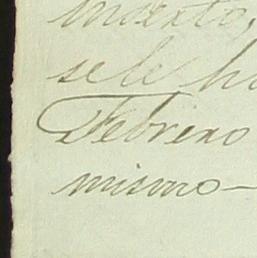 inserto,
sele ha
Febrero
mismo—